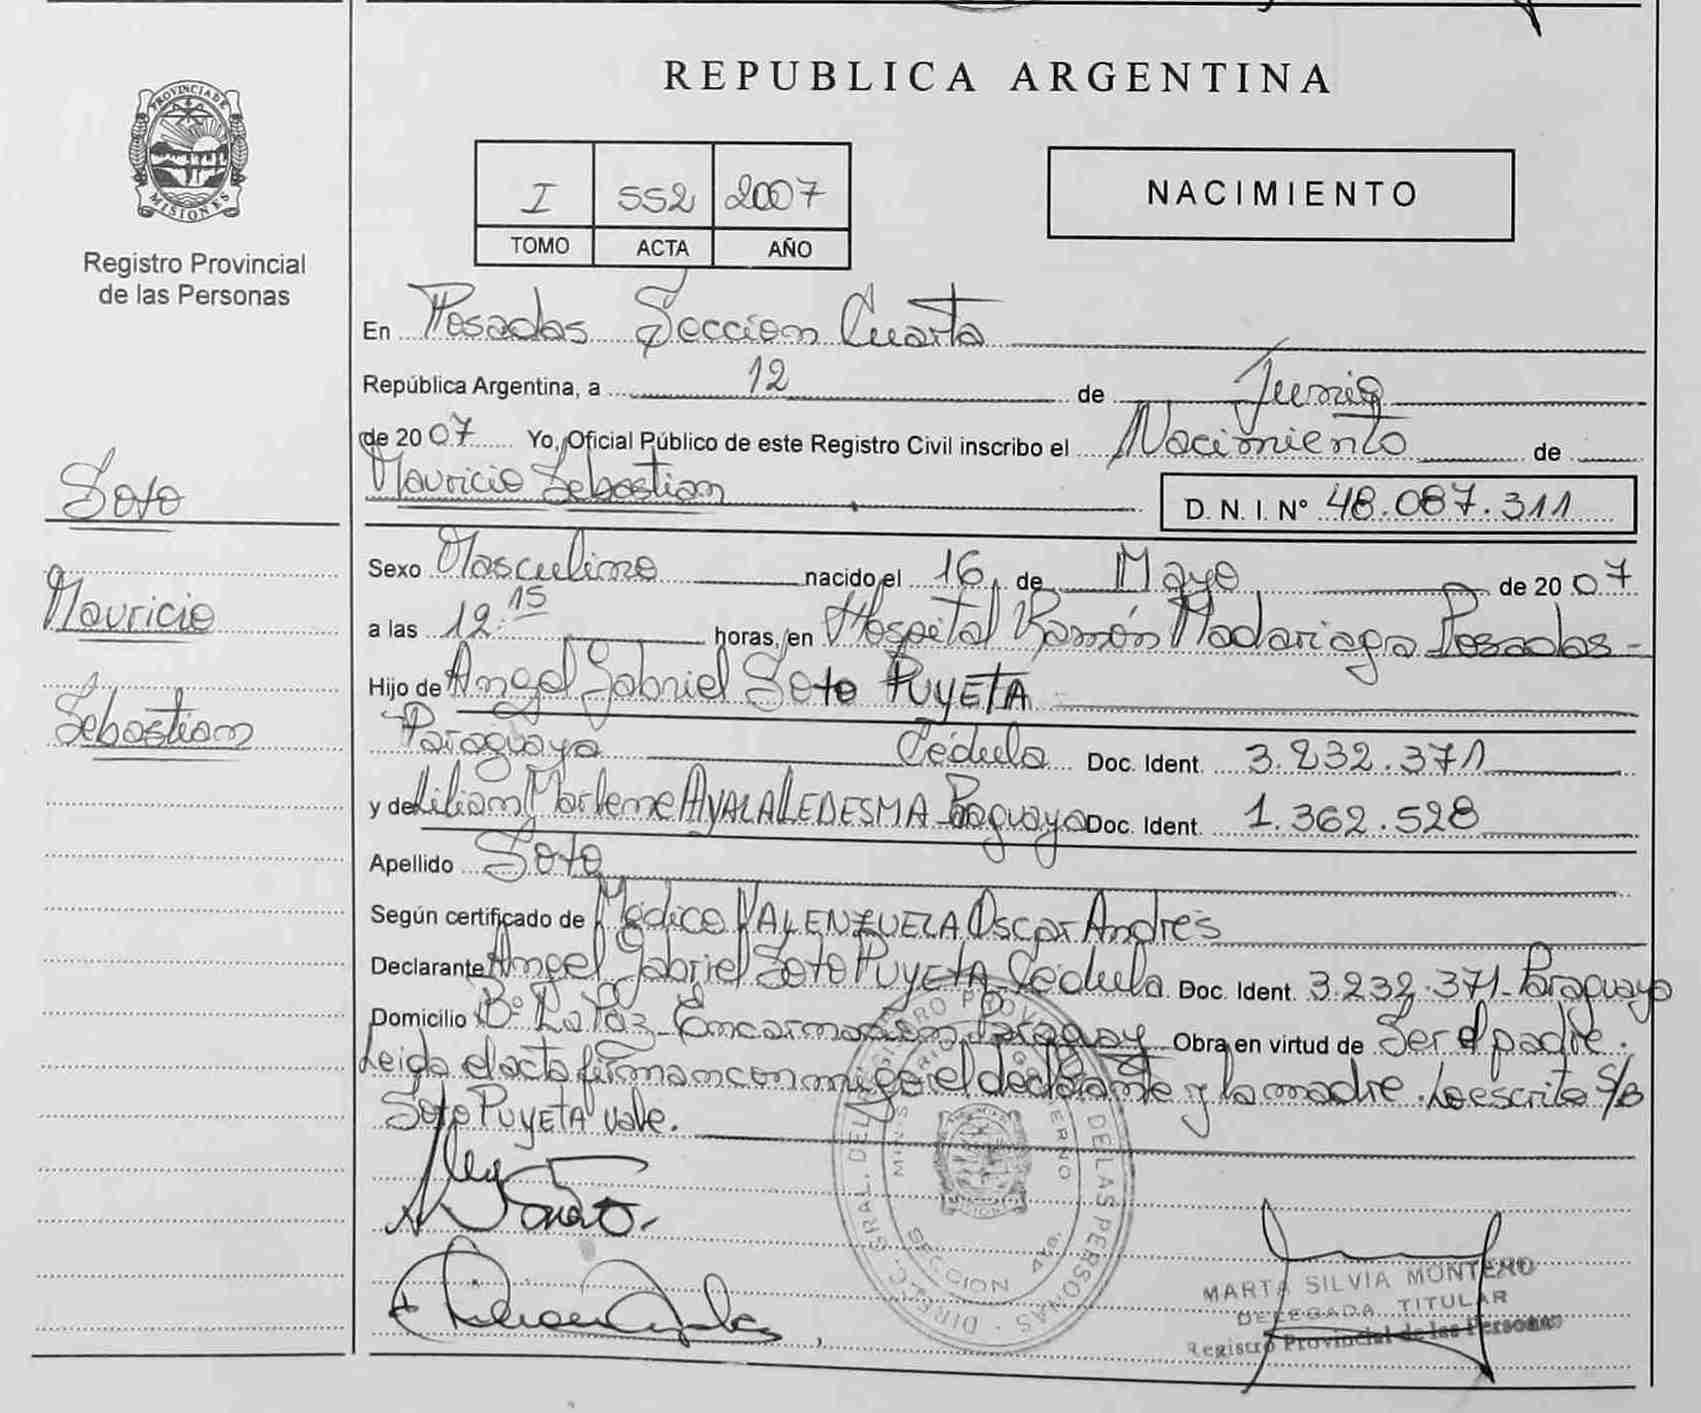 REPUBLICA ARGENTINA
PROVINCIA DE
MISIONES
Registro Provincial
de las Personas
I 552 2007
TOMO ACTA AÑO
NACIMIENTO
En Posadas Seccion Cuarta
República Argentina, a 12 de Junio
de 2007 Yo, Oficial Público de este Registro Civil inscribo el Nacimiento de
Mauricio Sebastian
D. N. I. Nº 48.087.311
Soto
Mauricio
Sebastian
Sexo Masculino nacido el 16 de Mayo de 2007
a las 12:15 horas, en Hospital Ramón Madariaga Posadas-
Hijo de Angel Gabriel Soto PUYETA
Paraguaya Cédula Doc. Ident. 3.232.371
y de Lilian Marlene AYALA LEDESMA Paguaya Doc. Ident. 1.362.528
Apellido Soto
Según certificado de Médico VALENZUELA Oscar Andrés
Declarante Angel Gabriel Soto PUYETA Cédula Doc. Ident. 3.232.371-Paraguaya
Domicilio Bº La Paz Encarnacion Paraguay Obra en virtud de Ser el padre.
Leida el acta firman conmigo el declarante y la madre. Lo escrito S/B
Soto PUYETA vale.
DIRECC. GRAL. DEL REGISTRO PROV. DE LAS PERSONAS
SECCION 4ta
MARTA SILVIA MONTERO
DELEGADA TITULAR
Registro Provincial de las Personas